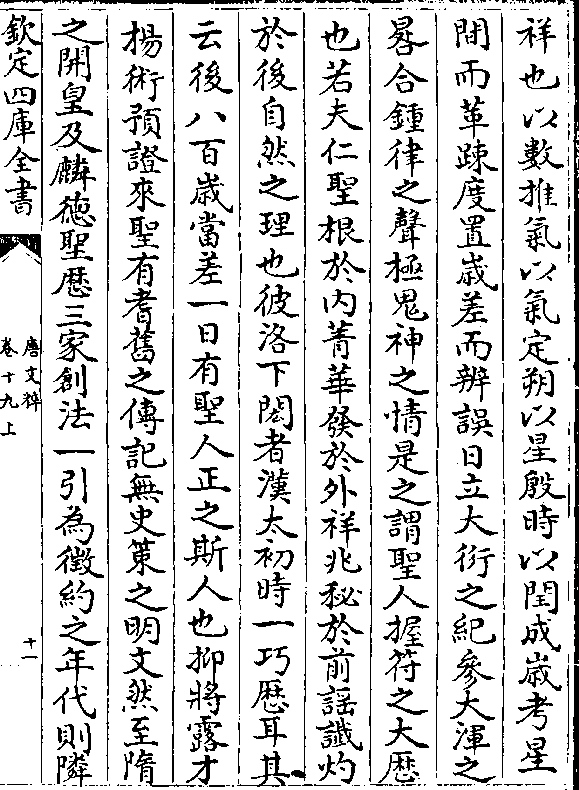 祥也以數推氣以氣定朔以星殷時以閏成嵗考星
間而革踈度置嵗差而辨誤日立大衍之紀參大渾之
晷合鍾律之聲極鬼神之情是之謂聖人握符之大厯
也若夫仁聖根於内菁華發於外祥兆秘於前謡讖灼
於後自然之理也彼洛下閎者漢太初時一巧厯耳其
云後八百嵗當差一日有聖人正之斯人也抑將露才
揚術預證來聖有耆舊之傳記無史策之明文然至隋
之開皇及麟徳聖厯三家創法一引為徵約之年代則隣
欽定四庫全書
唐文粹
卷十九上
十一